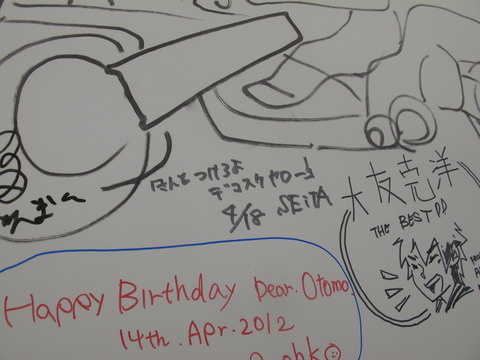 さんをつけろよ
デコスケヤロー!
4/18 SEiTA
大友克洋
THE BEST!!
Happy Birthday Dear. Otomo.
14th. Apr. 2012